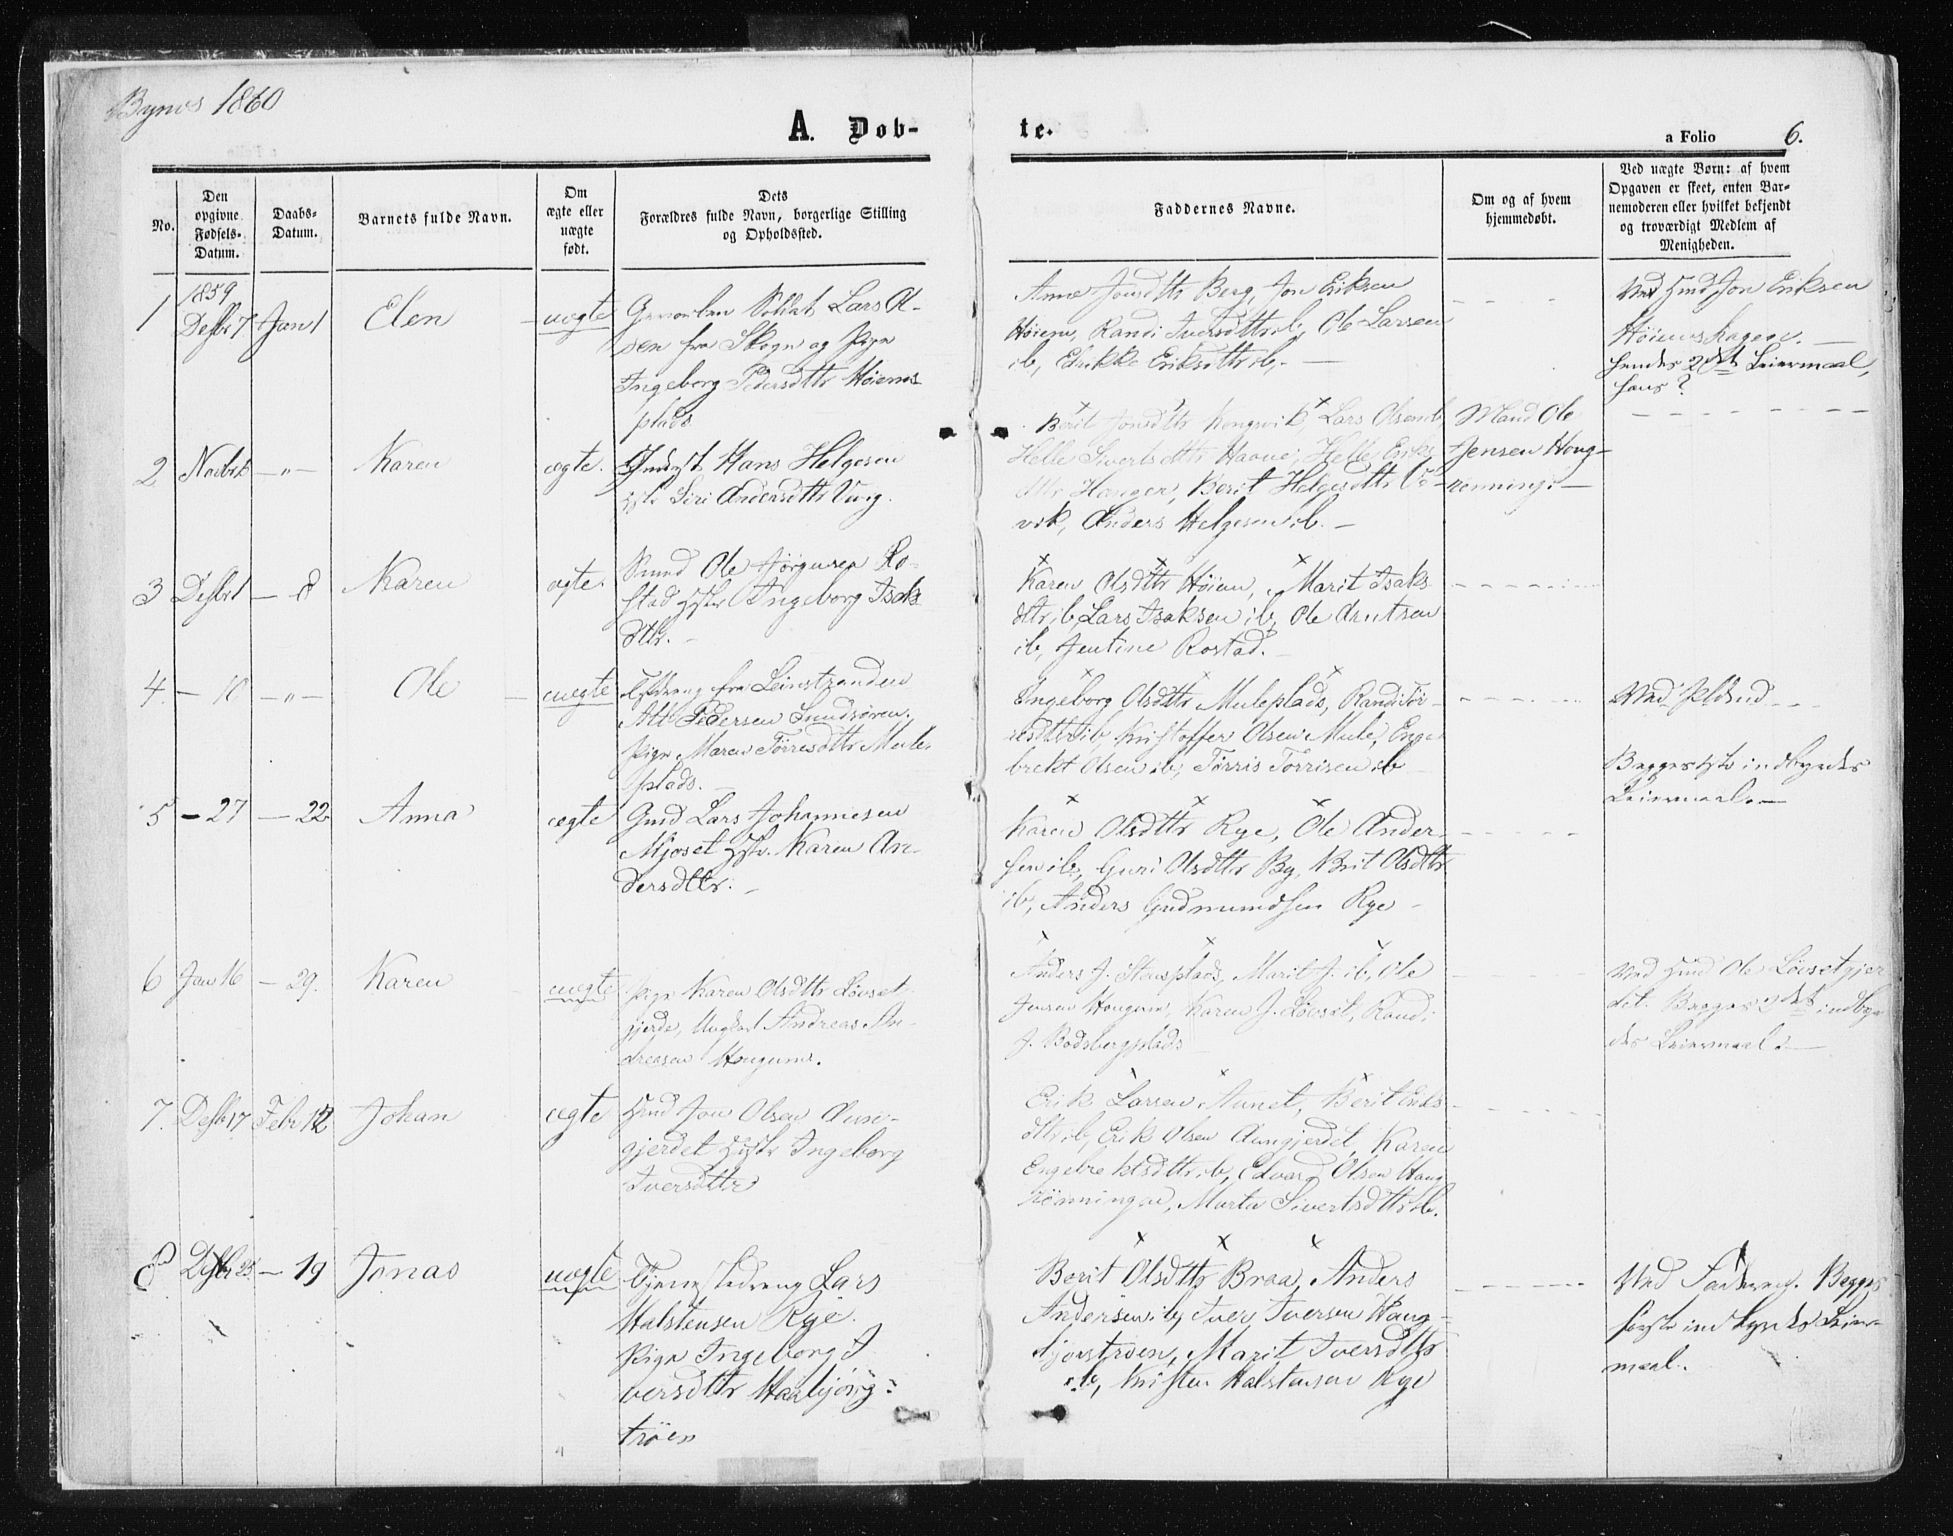 Bynes 1860
A. Døb-
te.
a Folio 6.
No.
Den
opgivne
Fødsels-
Datum.
Daabs-
Datum.
Barnets fulde Navn.
Om
ægte eller
uægte
født.
Dets
Forældres fulde Navn, borgerlige Stilling
og Opholdssted.
Faddernes Navne.
Om og af hvem
hjemmedøbt.
Ved uægte Børn: af hvem
Opgaven er skeet, enten Bar-
nemoderen eller hvilket bekjendt
og troværdigt Medlem af
Menigheden.
1859
1 Desbr 7 Jan 1 Elen uægte
Soldat Lars Ol-
sen fra Skogn og Pige
Ingeborg Pedersdttr Høiems
plads
Anne Jonsdttr Berg, Jon Eriksen
Høiem, Randi Iversdttr ib, Ole Larsen
ib, Eriksdttr ib,
Ved Hmd Jon Eriksen
Høiemshagen.
hendes 2det Leiermaal,
hans?
2 Novbr Karen ægte.
Hans Helgesen
Siri Andersdttr
Berit Jonsdttr Kongsvik, Lars Olsen ib
Helle Sivertsdttr Haave, Helle Eriks
dttr Haugen, Berit Helgesdttr Vo-
vik, Anders Helgesen ib.
Mand Ole
Jensen Houg-
rønning.
3 Desbr 1 - 8 Karen ægte.
Ole Jørgensen Ro-
stad Hstr Ingeborg Isaks
dttr.
Karen Olsdttr Høiem, Marit Isaks
dttr ib, Lars Isaksen ib, Ole Arntsen
ib, Jentine Rostad.
4. - 10 - " - Ole uægte
fra Leinstranden
Pedersen Sundsøren.
Pige Maren Tørrisdttr Mule
plads.
Ingeborg Olsdttr Muleplads, Randi Tør-
risdttr ib, Kristoffer Olsen Mule, Enge
brekt Olsen ib, Tørris Torrisen ib
Begges 1ste indbyrdes
Leiermaal.
5 - 27 - 22 Anna ægte
Gmd Lars Johannesen
Mjøset Hstr. Karen An-
dersdttr.
Karen Olsdttr Rye, Ole Ander-
sen ib, Guri Olsdttr By, Brit Olsdttr
ib, Anders Gudmundsen Rye
6 Jan 16 - 29. Karen uægte
Pige Karen Olsdttr Løvset
gjerde, Ungkarl Andreas An-
dreasen Hougum.
Anders J. Stensplads, Marit J. ib, Ole
Jensen Hougum, Karen J. Løvset, Randi
J. Bodsbergplads
Ved Hmd Ole Løvsetgjer
det. Begges 2det indbyr
des Leiermaal.
7. Desbr 17 Febr 12 Johan ægte
Hmd Jon Olsen Aun-
gjerdet Hstr Ingeborg
Iversdttr
Erik Larsen Aunet, Berit Eriks
dttr ib, Erik Olsen Aungjerdet, Karen
Engebrektsdttr ib, Edvard Olsen Houg
rønningen, Marta Sivertsdttr ib.
8 Desbr 25 - 19 Jonas uægte
Tjenestedreng Lars
Halstensen Rye.
Pige Ingeborg I-
versdttr Haabjørg-
trøen
Berit Olsdttr Braa, Anders
Andersen ib, Iver Iversen Haug-
bjørstrøen, Marit Iversdttr
ib, Kristen Halstensen Rye
Ved Faderen. Begges
første indbyrdes Leier-
maal.